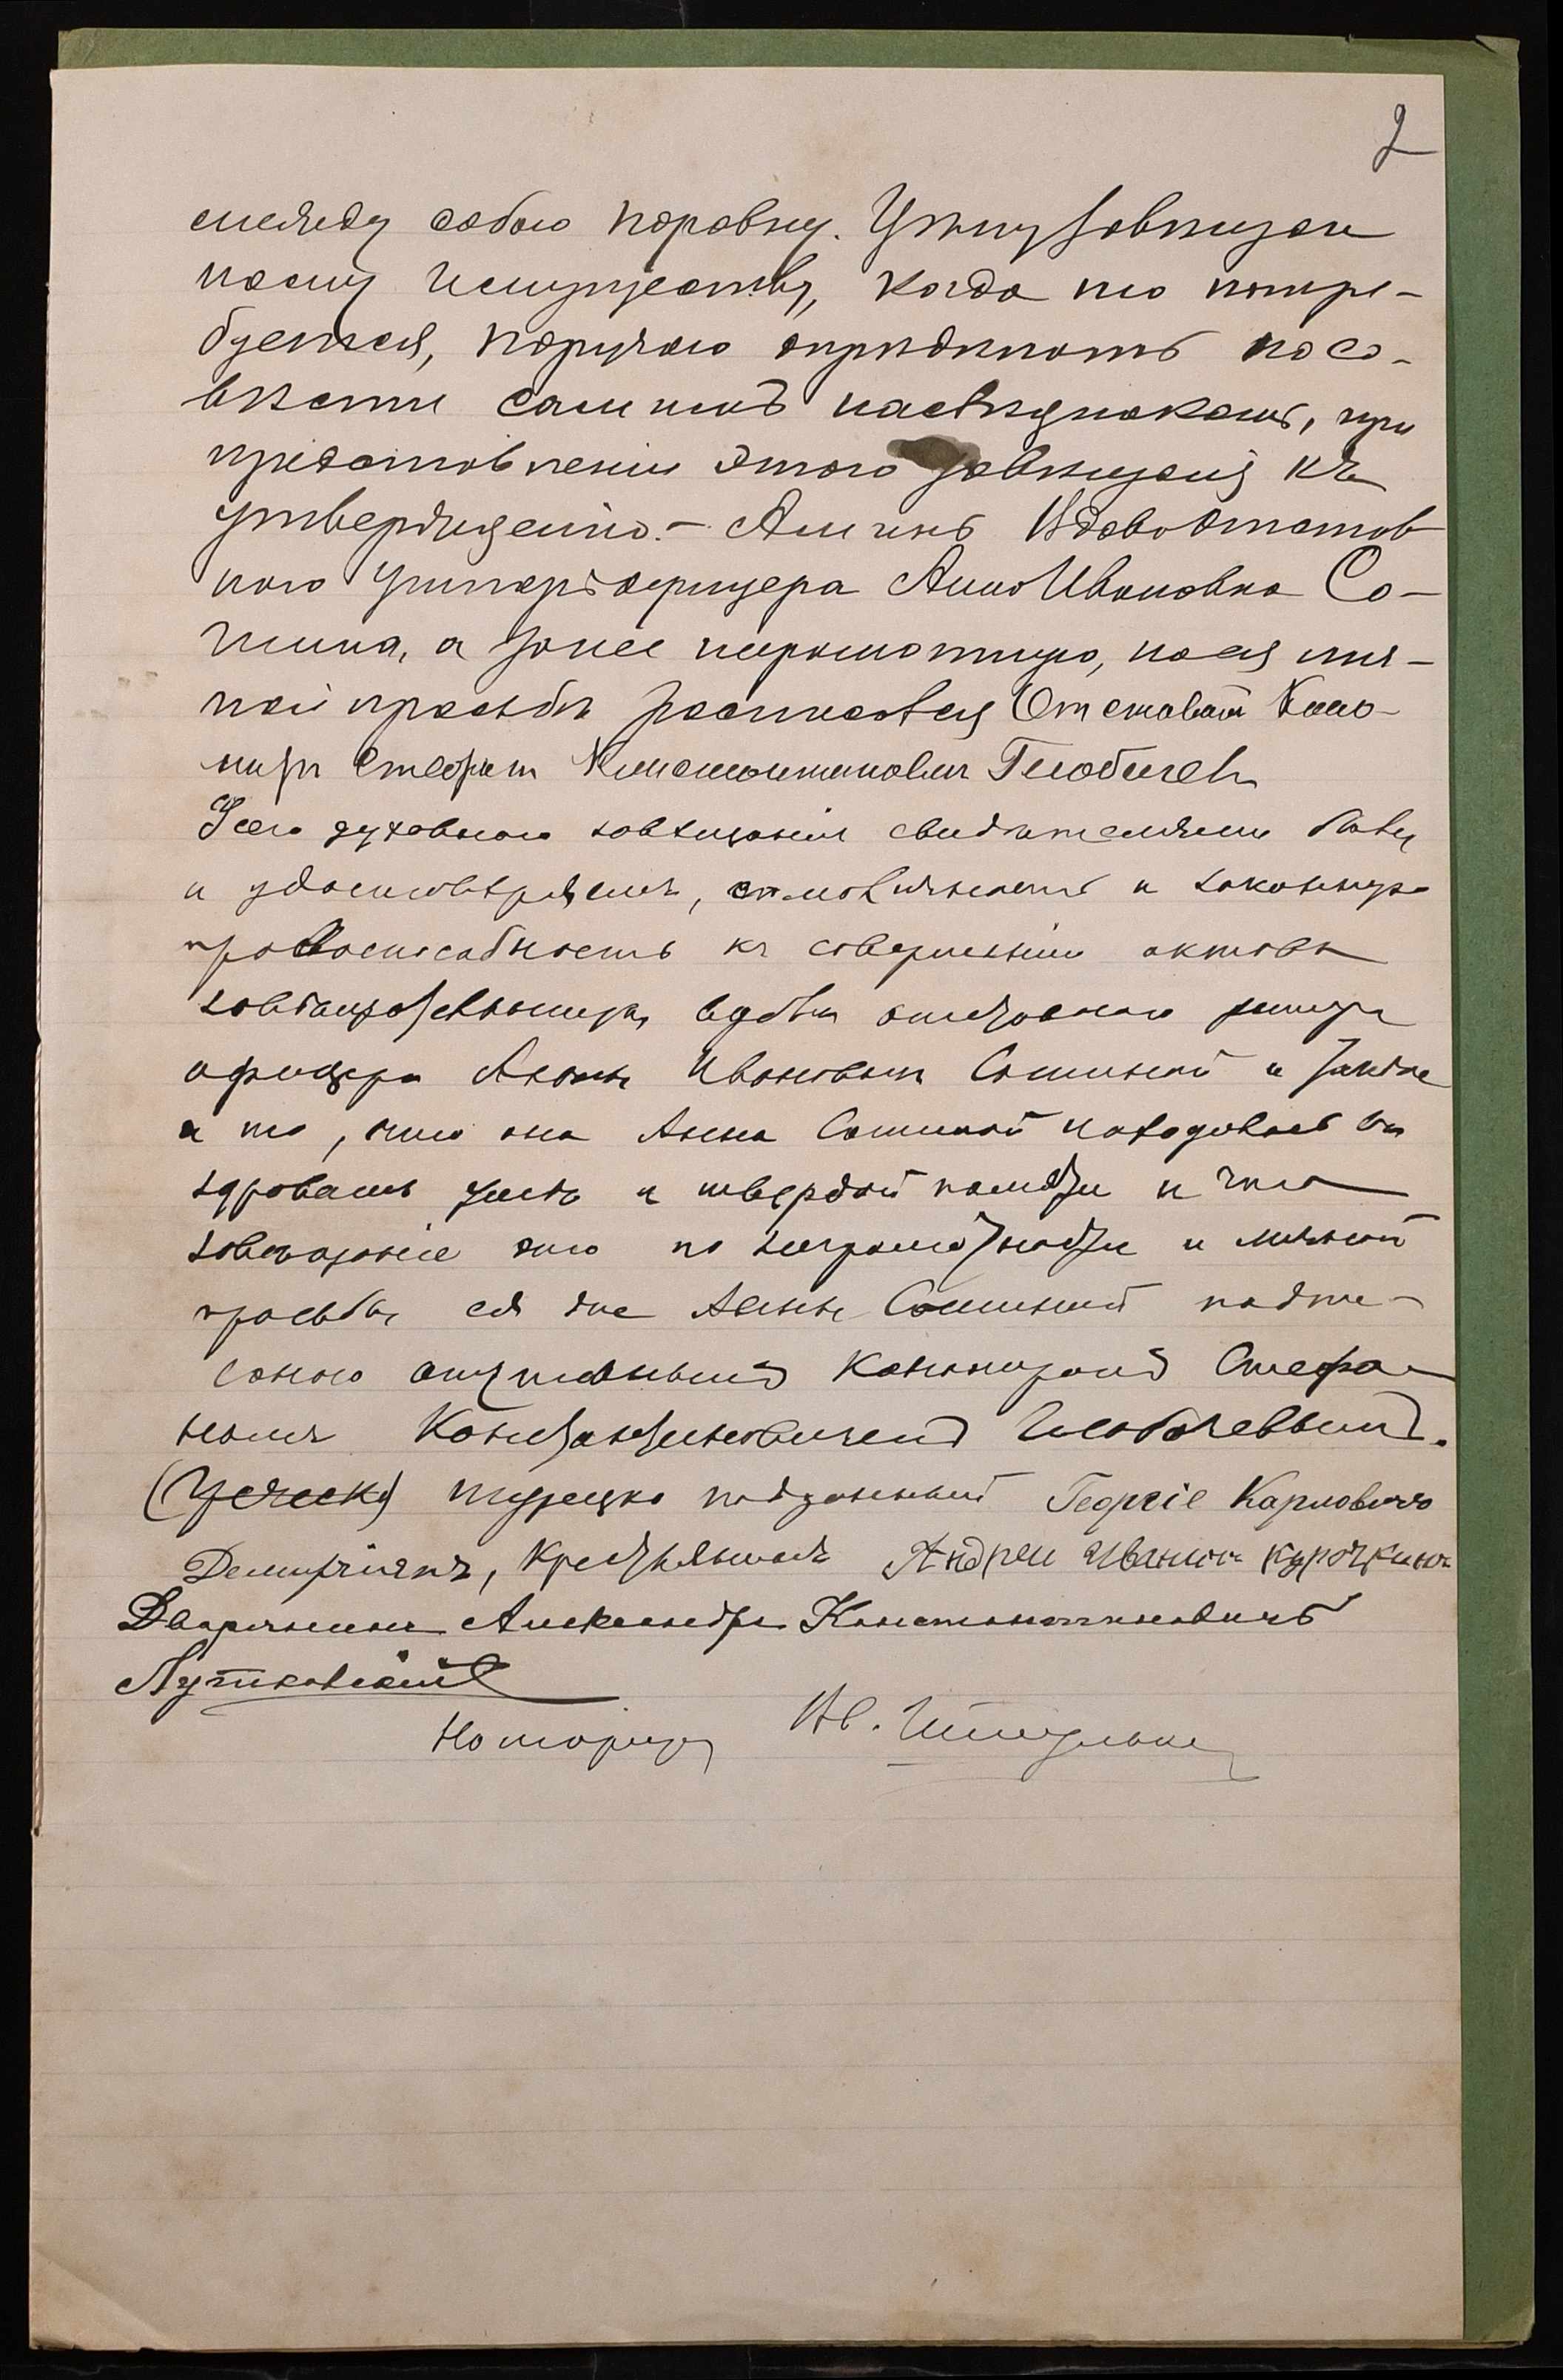 2
между собою поровну. Цѣну завѣщан
ному имуществу, когда то потре-
буется, поручаю опредѣлить по со-
вѣсти самимъ наслѣдникамъ, при
представленіи этого завѣщанія къ
утвержденію. - Аминь Вдова Отстав
ного Унтеръ офицера Анна Ивановна Со-
мина, а за нее неграмотную, по ея лич-
ной прозьбѣ росписался Отставной Кано-
ниръ Стефанъ Константиновичъ Глобачевъ
Сего духовнаго завѣщанія свидѣтелями были
и удостовѣряемъ, самоличность и законную
правоспособность къ совершенію актовъ
завѣщательницы, вдовы отставного унтеръ
офицера Анны Ивановны Соминой и также
и то, что она Анна Соминой находилась въ
здравомъ умѣ и твердой памяти и что
завѣщаніе это по неграмотности и личной
просьбы ея же Анны Соминой подпи-
сано отставнымъ Канониромъ Стефа-
номъ Константиновичемъ Глобачевымъ.
турецко подданный Георгіе Карповичъ
Демирчіянъ, Крестьянинъ Андрей Ивановъ Курочкинъ
Дворянинъ Александръ Константиновичъ
Лутковскій
Нотаріусъ